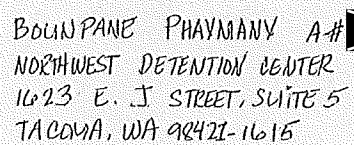 BOUNPANE PHAYMANY A#
NORTHWEST DETENTION CENTER
1623 E. J STREET, SUITE 5
TACOMA, WA 98421-1615